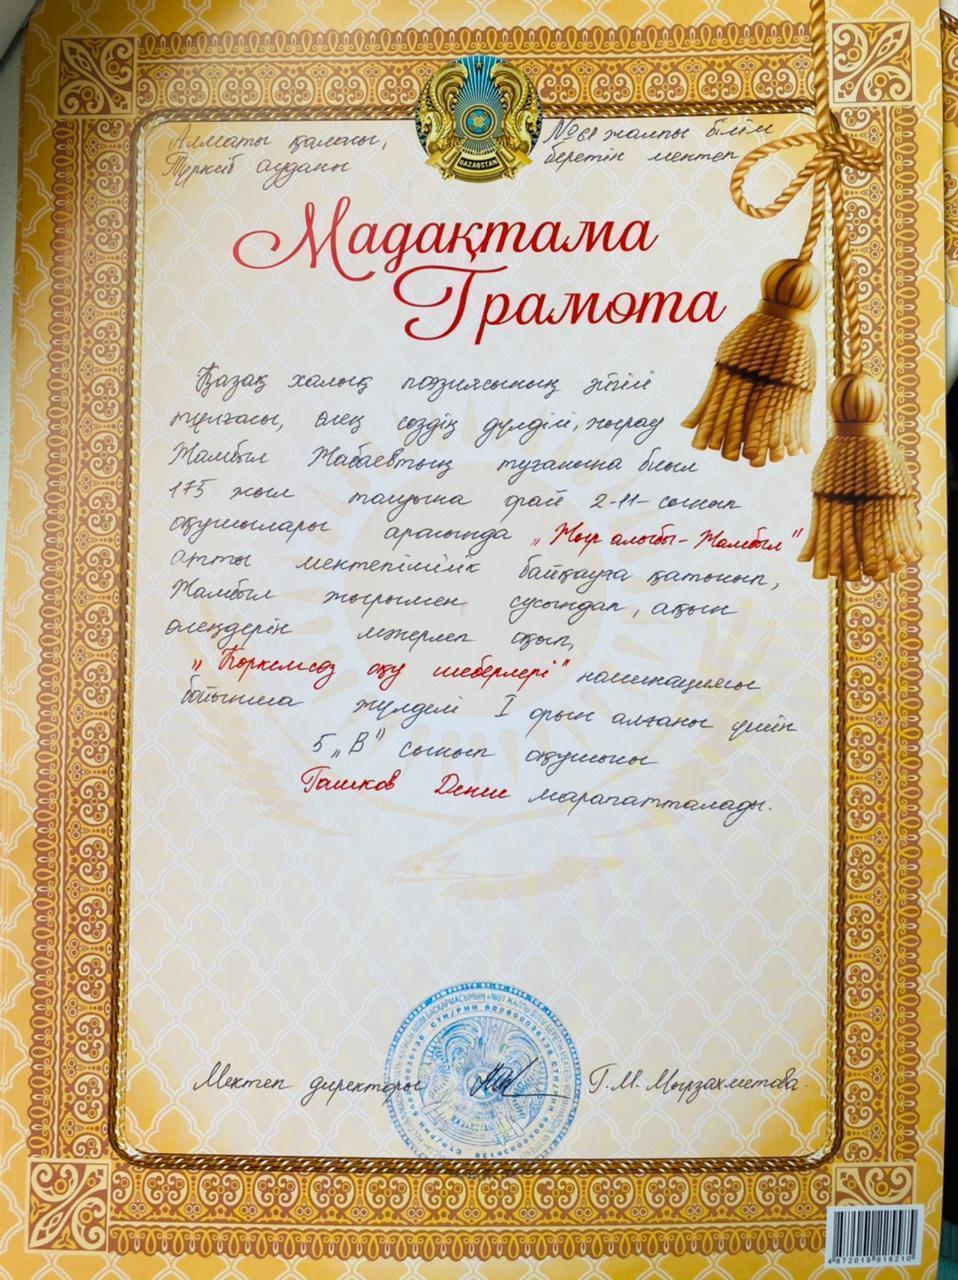 Алматы қаласы,
Түрксіб ауданы
№ 61 жалпы білім
беретін мектеп
QAZAQSTAN
Мадақтама
Грамота
Қазақ халық поэзиясының әйгілі
тұлғасы, өлең сөздің дүлділі, жырау
Жамбыл Жабаевтың туғанына биыл
175 жыл толуына орай 2-11- сынып
оқушылары арасында „Жыр алыбы - Жамбыл"
атты мектепішілік байқауға қатысып,
Жамбыл жырымен сусындап, ақын
өлеңдерін мәнерлеп оқып,
„Көркемсөз оқу шеберлері" номинациясы
бойынша жүлделі I орын алғаны үшін
5 „В" сынып оқушысы
Ташков Денис марапатталады.
Мектеп директоры
Г.М. Мырзахметова
СТН/РНН 600800036138
ҚАЗАҚСТАН
4872019918210